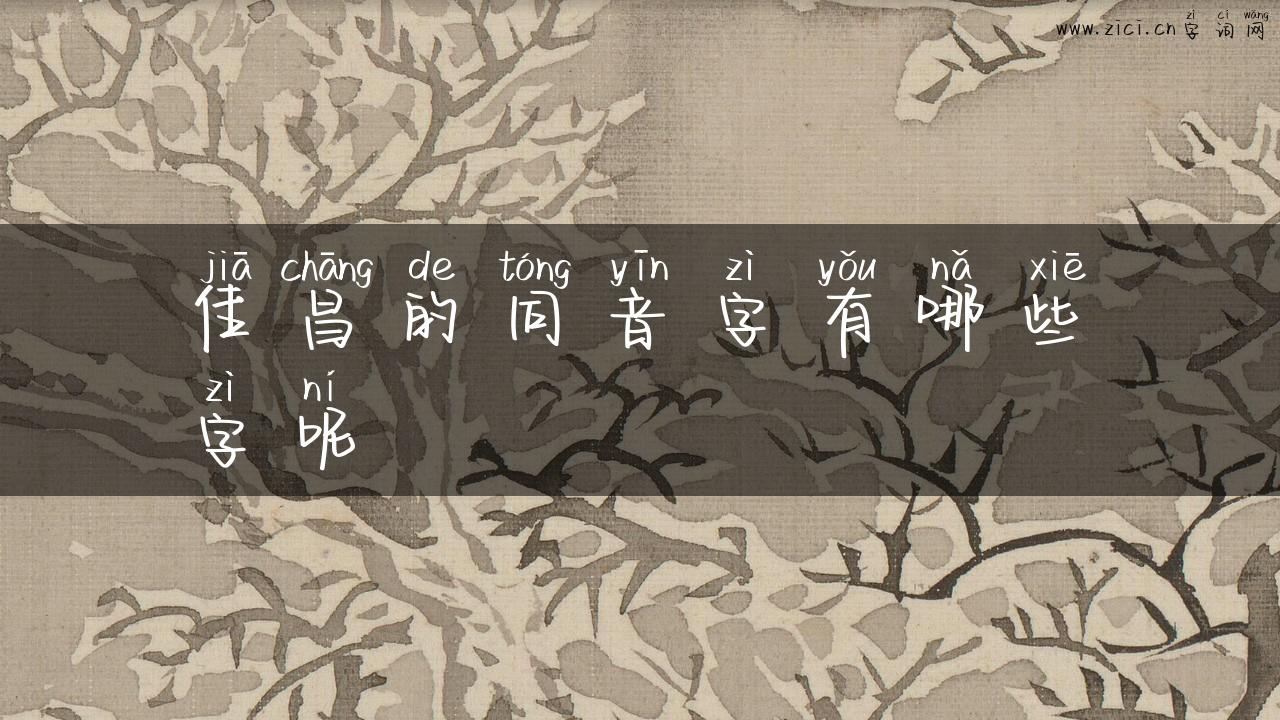 zì cí wǎng
www.zici.cn字词网
jiā chāng de tóng yīn zì yǒu nǎ xiē
佳昌的同音字有哪些
zì ní
字呢